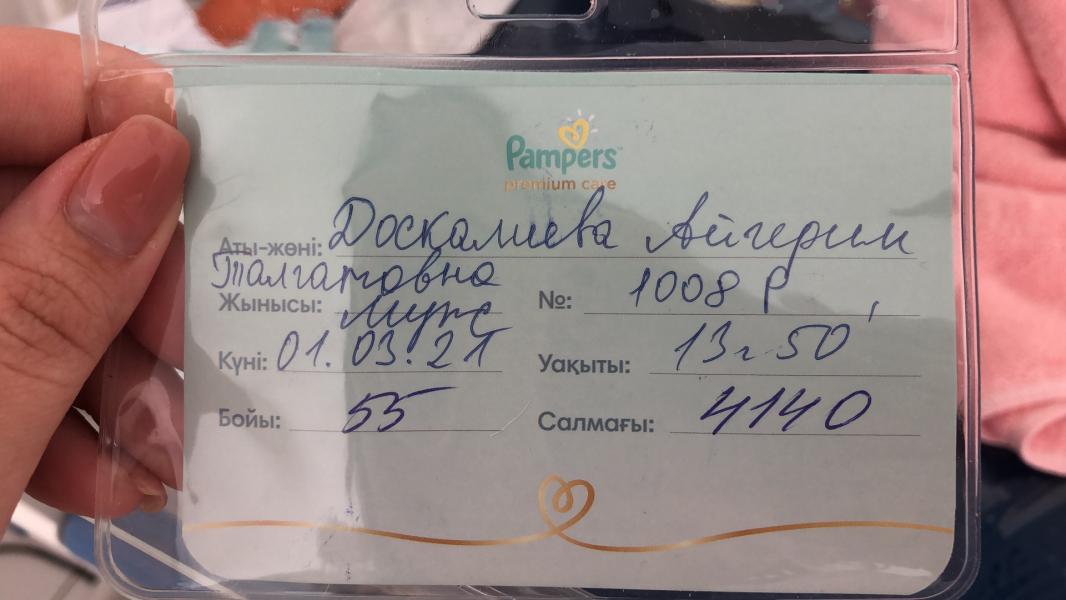 Pampers™
premium care
Аты-жөні: Досқалиева Айгерим
Талгатовна
Жынысы: муж №: 1008 р
Күні: 01.03.21 Уақыты: 13ч 50'
Бойы: 55 Салмағы: 4140